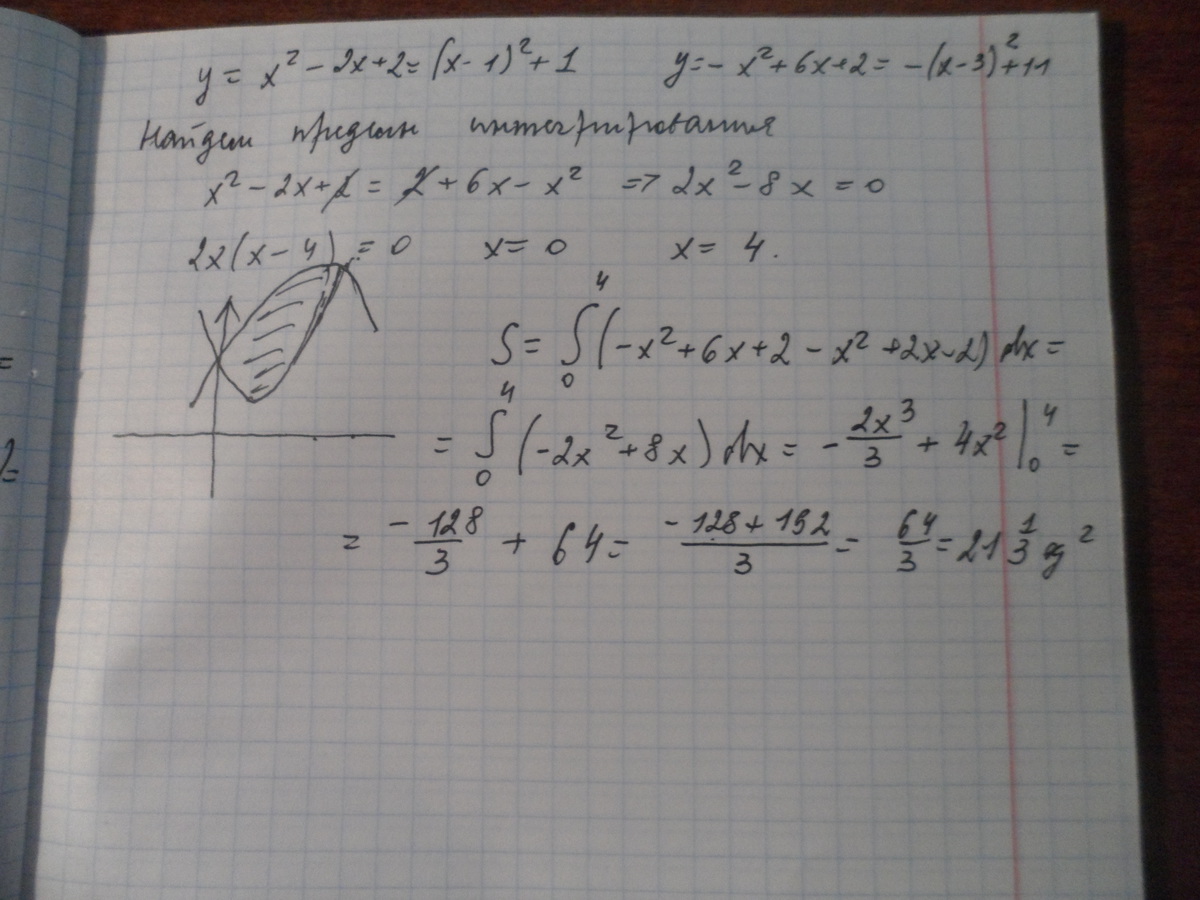 y = x² - 2x + 2 = (x - 1)² + 1 y = - x² + 6x + 2 = -(x - 3)² + 11
Найдем пределы интегрирования
x² - 2x + 2 = 2 + 6x - x² => 2x² - 8x = 0
2x(x - 4) = 0 x = 0 x = 4.
S = ∫₀⁴ (-x² + 6x + 2 - x² + 2x - 2) dx =
= ∫₀⁴ (-2x² + 8x) dx = - 2x³/3 + 4x² |₀⁴ =
= -128/3 + 64 = (-128 + 192)/3 = 64/3 = 21 1/3
=
2=